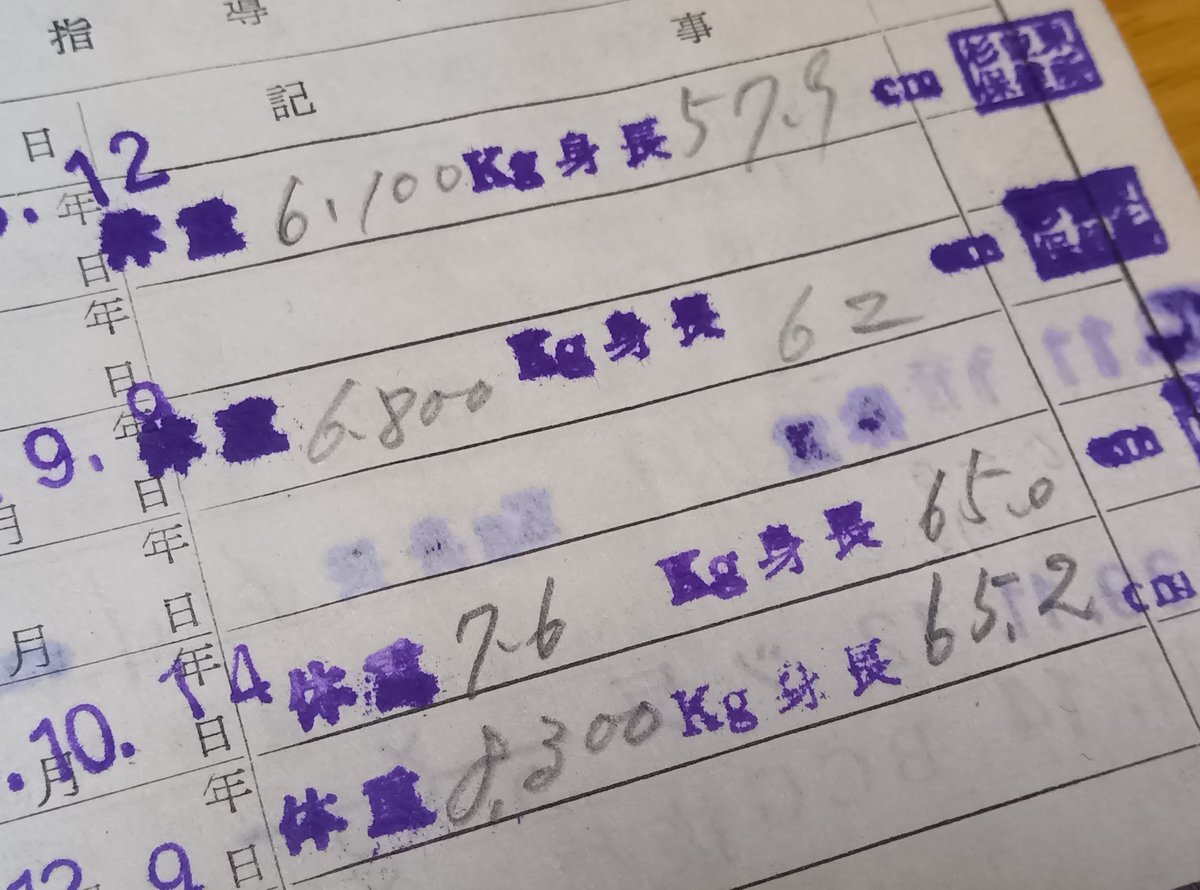 指導
記事
日
12
年
体重 6.100 Kg 身長 57.9 cm
日
年
日
9. 9
年
体重 6.800 Kg 身長 62 cm
日
月
年
日
月
.10. 14
年
体重 7.6 Kg 身長 65.0 cm
日
月
年
体重 8.300 Kg 身長 65.2 cm
12. 9
日